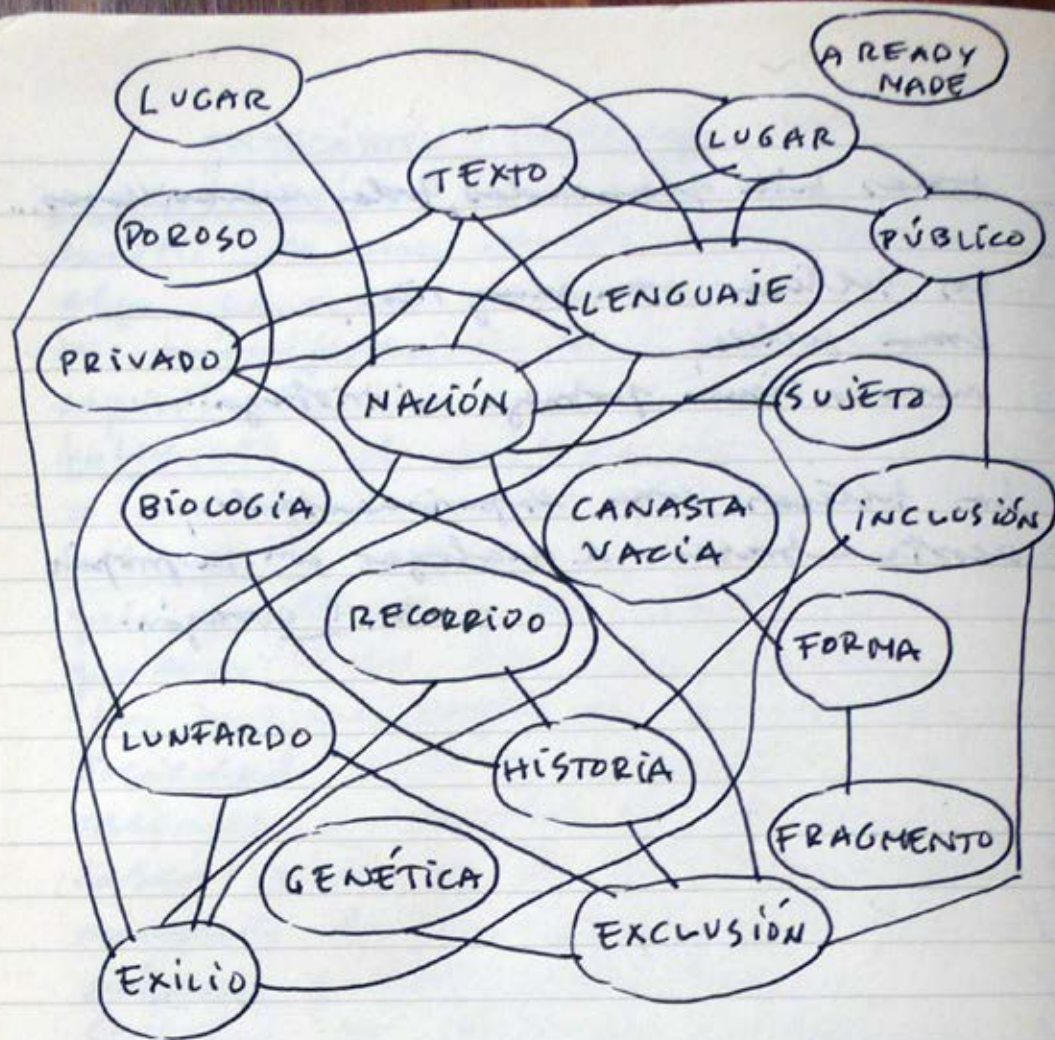 A READY
MADE
LUGAR
LUGAR
TEXTO
POROSO
PÚBLICO
LENGUAJE
PRIVADO
NACIÓN
SUJETO
BIOLOGIA
CANASTA
VACIA
INCLUSIÓN
RECORRIDO
FORMA
LUNFARDO
HISTORIA
FRAGMENTO
GENÉTICA
EXCLUSIÓN
EXILIO